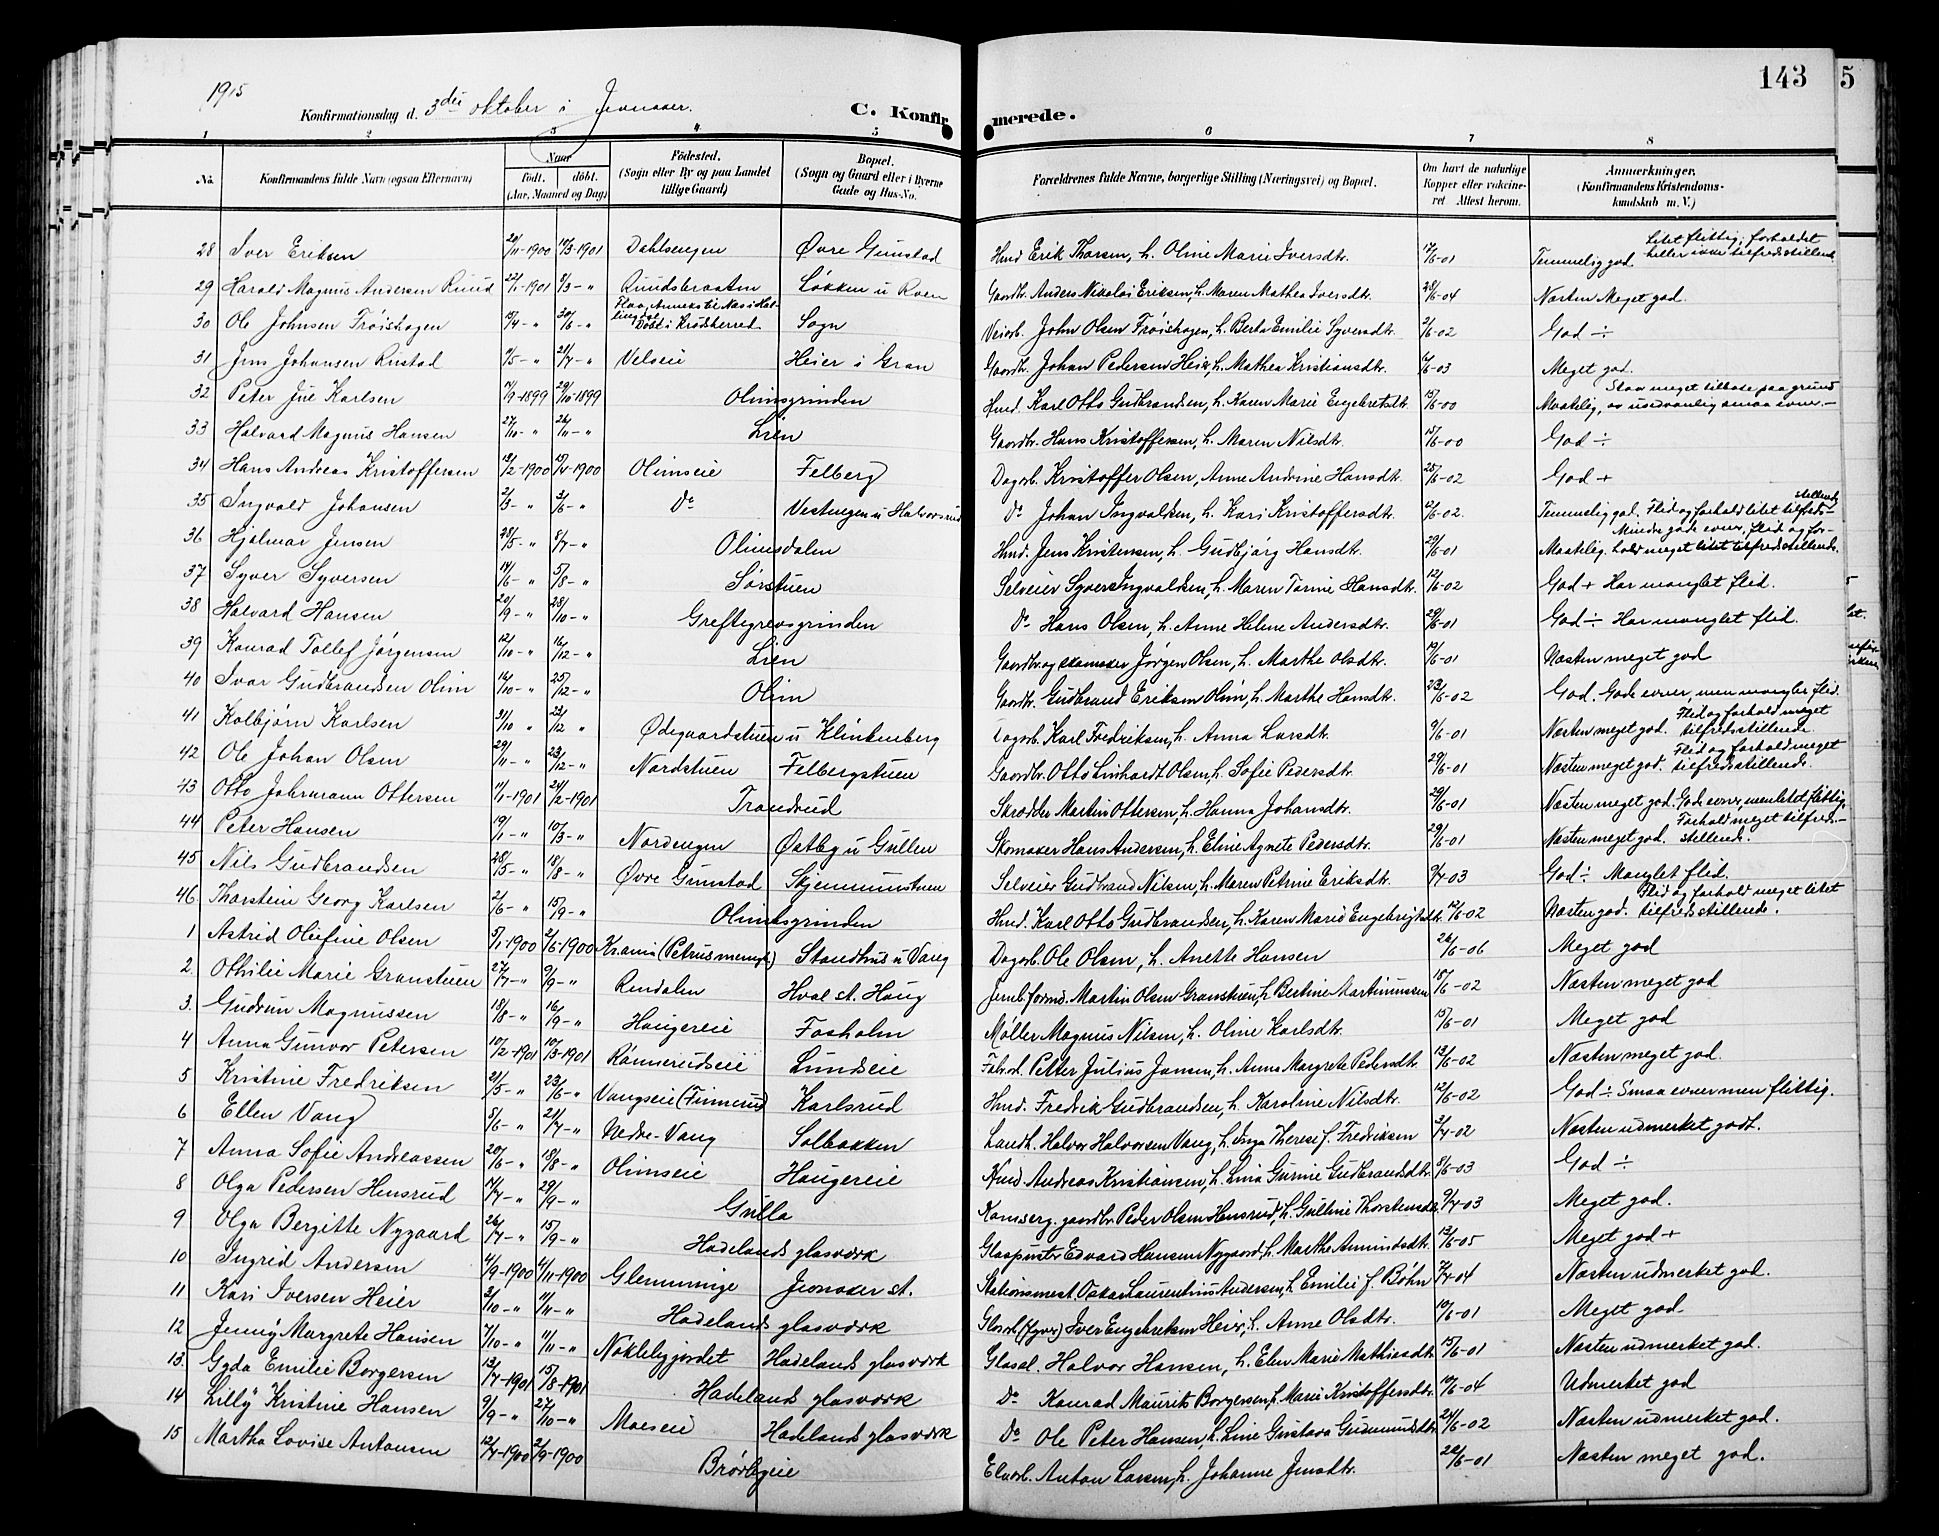 1915
143
5
Konfirmationsdag d. 3die oktober i Jevnaker.
C. Konfirmerede.
1 2 3 4 5 6 7 8
No. Konfirmandens fulde Navn (ogsaa Efternavn) Naar født. døbt. (Aar, Maaned og Dag) Fødested. (Sogn eller By og paa Landet tillige Gaard) Bopæl. (Sogn og Gaard eller i Byerne Gade og Hus-No. Forældrenes fulde Navne, borgerlige Stilling (Næringsvei) og Bopæl. Om havt de naturlige Kopper eller vakcineret Attest herom. Anmærkninger. (Konfirmandens Kristendomskundskab m. V.)
28 Iver Eriksen 20/11-1900 17/3-1901 Dahlsengen Øvre Gunstad Hmd Erik Thorsen, h. Oline Marie Iversdtr. 17/6-01 Temmelig god. Litet flittig; forholdet heller ikke tilfredsstillende
29 Harald Magnus Andersen Ruud 22/1-1901 8/3-" Ruudsbraaten Løkken u Roen Gaardbr. Anders Nikolai Eriksen, h. Maren Mathea Iversdtr. 28/6-04 Næsten Meget god.
30 Ole Johnsen Trøishagen 15/4-" 30/6-" Flaa, Anneks til Nes i Hallingdal Døbt i Krødsherred Sogn Veiarb. John Olsen Frøishagen, h. Berta Emilie Syversdtr. 2/6-02 God ÷
31 Jens Johansen Rustad 9/5-" 21/7-" Velseie Heier i Gran Gaardbr. Johan Pedersen Heier, h. Mathea Kristiansdtr. 4/6-03 Meget god.
32 Peter Jue Karlsen 7/9-1899 29/10-1899 Olimsgrinden Hmd. Karl Otto Gudbrandsen, h. Karen Marie Engebretsdtr. 15/6-00 Maatelig, Staar meget tilbake paa grund av usedvanlig smaa evner.-
33 Halvard Magnus Hansen 27/10-" 26/11-" Lien Gaardbr. Hans Kristoffersen, h. Maren Nilsdtr. 15/6-00 God ÷
34 Hans Andreas Kristoffersen 13/2-1900 15/4-1900 Olimseie Felberg Dagarb. Kristoffer Olsen, Anne Andrine Hansdtr. 25/6-02 God +
35 Ingvald Johansen 2/3-" 3/6-" Do Vestengen u Halvorsrud Do Johan Ingvaldsen, h. Kari Kristoffersdtr. 12/6-02. Temmelig god. Flid og forhold litet tilfredsstillende
36 Hjalmar Jensen 28/5-" 8/7-" Olimsdalen Hmd. Jens Kristensen, h. Gudbjørg Hansdtr. 29/6-01 Maatelig. Mindre gode evner, flid og forhold meget litet tilfredsstillende.
37 Syver Syversen 14/6-" 5/8-" Sørstuen Selveier Syver Ingvaldsen, h. Maren Tonnie Hansdtr. 12/6-02 God + Har manglet flid.
38 Halvard Hansen 20/9-" 28/10-" Greftegrevsgrinden Do Hans Olsen, h. Anne Helene Andersdtr. 29/6-01 God ÷ Har manglet flid.
39 Konrad Tollef Jørgensen 12/10-" 16/12-" Lien Gaardbr og skomaker Jørgen Olsen, h. Marthe Olsdtr. 19/6-01 Næsten meget god
40 Ivar Gudbrandsen Olim 14/10-" 25/12-" Olim Gaardbr. Gudbrand Eriksen Olim, h. Marthe Hansdtr. 23/6-02 God. Gode evner, men mangler flid.
41 Kolbjørn Karlsen 31/10 " 23/12 " Ødegaardstuen u Klinkenberg Dagarb. Karl Fredriksen, h. Anna Larsdtr. 9/6-01 Næsten meget god. Flid og forhold meget tilfredsstillende
42 Ole Johan Olsen 29/11-" 23/12-" Nordstuen Felbergstuen Gaardbr. Otto Linhardt Olsen, h. Sofie Pedersdtr. 29/6-01 Næsten meget god. Flid og forhold meget tilfredsstillende.
43 Otto Johrmann Ottersen 11/1-1901 24/2-1901 Trondrud Skrædder Martin Ottersen, h. Hanna Johansdtr. 29/6-01 Næsten meget god. Gode evner, men litet flittig.
44 Peter Hansen 19/1-" 10/3-" Nordengen Østby u Gullen Skomaker Hans Andersen, h. Eline Agnete Pedersdtr. 29/6-01 Næsten meget god. Forhold meget tilfredsstillende.
45 Nils Gudbrandsen 28/5-" 18/8-" Øvre Gunstad Skjennumstuen Selveier Gudbrand Nilsen, h. Maren Petrine Eriksdtr. 9/7-03 God ÷ Manglet flid.
46 Thorstein Georg Karlsen 2/6-" 15/9-" Olimsgrinden Hmd. Karl Otto Gudbrandsen, h. Karen Marie Engebrigtsdtr. 12/6-02 Næsten god. Flid og forhold meget litet tilfredsstillende.
1 Astrid Olufine Olsen 5/1-1900 2/5-1900 Krania (Petrusmenigh.) Standhus u Vang Dagarb. Ole Olsen, h. Anette Hansen 26/6-06 Meget god
2. Othilie Marie Granstuen 27/7-" 9/9-" Rendalen Hval st. Haug Jernb.formd. Martin Olsen Granstuen, h. Bertine Martinussen 18/6-02 Næsten meget god
3. Gudrun Magnussen 18/8-" 16/9-" Haugereie Fosholm Møller Magnus Nilsen, h. Oline Karlsdtr. 15/6-01 Meget god
4 Anna Gunvor Petersen 10/2-1901 10/3-1901 Rønnerudseie Lundseie Fabr.arb. Petter Julius Jansen, h. Anna Margrete Pedersdtr. 13/6-02 Næsten meget god.
5 Kristine Fredriksen 21/5-" 23/6-" Vangseie (Finnerud) Karlsrud Hmd. Fredrik Gudbrandsen, h. Karoline Nilsdtr. 12/6-02 God ÷ Smaa evner men flittig.
6 Ellen Vang 5/6-" 21/7-" Nedre-Vang Solbakken Landh. Halvor Halvorsen Vang, h. Inga Therese f. Fredriksen 3/7-02 Næsten udmerket godt.
7 Anna Sofie Andreassen 20/6-" 18/8-" Olimseie Haugereie Hmd. Andreas Kristiansen, h. Lina Gurine Gudbrandsdtr. 8/6-03 God ÷
8 Olga Pedersen Hensrud 7/7-" 29/9-" Gulla Kamserg. gaardbr. Peder Olsen Hensrud, h. Gulline Thorstensdtr. 9/7-03 Meget god.
9 Olga Bergitte Nygaard 26/7-" 15/9-" Hadelands glasværk Glaspuster Edvard Hansen Nygaard, h. Marthe Amundsdtr. 13/6-05 Meget god +
10 Ingrid Andersen 4/9-1900 4/11-1900 Glemminge Jevnaker st. Stationsmest. Oskar Laurentius Andersen, h. Emilie f. Bøhn 7/7-04 Næsten udmerket god.
11 Kari Iversen Heier 3/10-" 11/11-" Hadelands glasværk Iver Engebretsen Heier, h. Anne Olsdtr. 10/6-01 Meget god-
12 Jenny Margrete Hansen 7/10-" 11/11-" Nøklebyjordet Hadelands glasværk Glassl. Halvor Hansen, h. Elen Marie Mathiasdtr. 15/6-01 Næsten udmerket god.
13. Gyda Emilie Borgersen 13/7-1901 15/8-1901 Hadelands glasværk Do Konrad Maurits Borgersen, h. Marie Kristoffersdtr. 10/6-04 Udmerket god
14 Lilly Kristine Hansen 9/9-" 27/10-" Moeseie Hadelands glasværk Do Ole Peter Hansen, h. Line Gustava Gudmundsdtr. 24/6-02 Næsten udmerket god.
15 Martha Lovise Antonsen 12/7-1900 2/9-1900 Brørbyeie Elvarb. Anton Larsen, h. Johanne Jensdtr. 22/6-01 Næsten meget god.